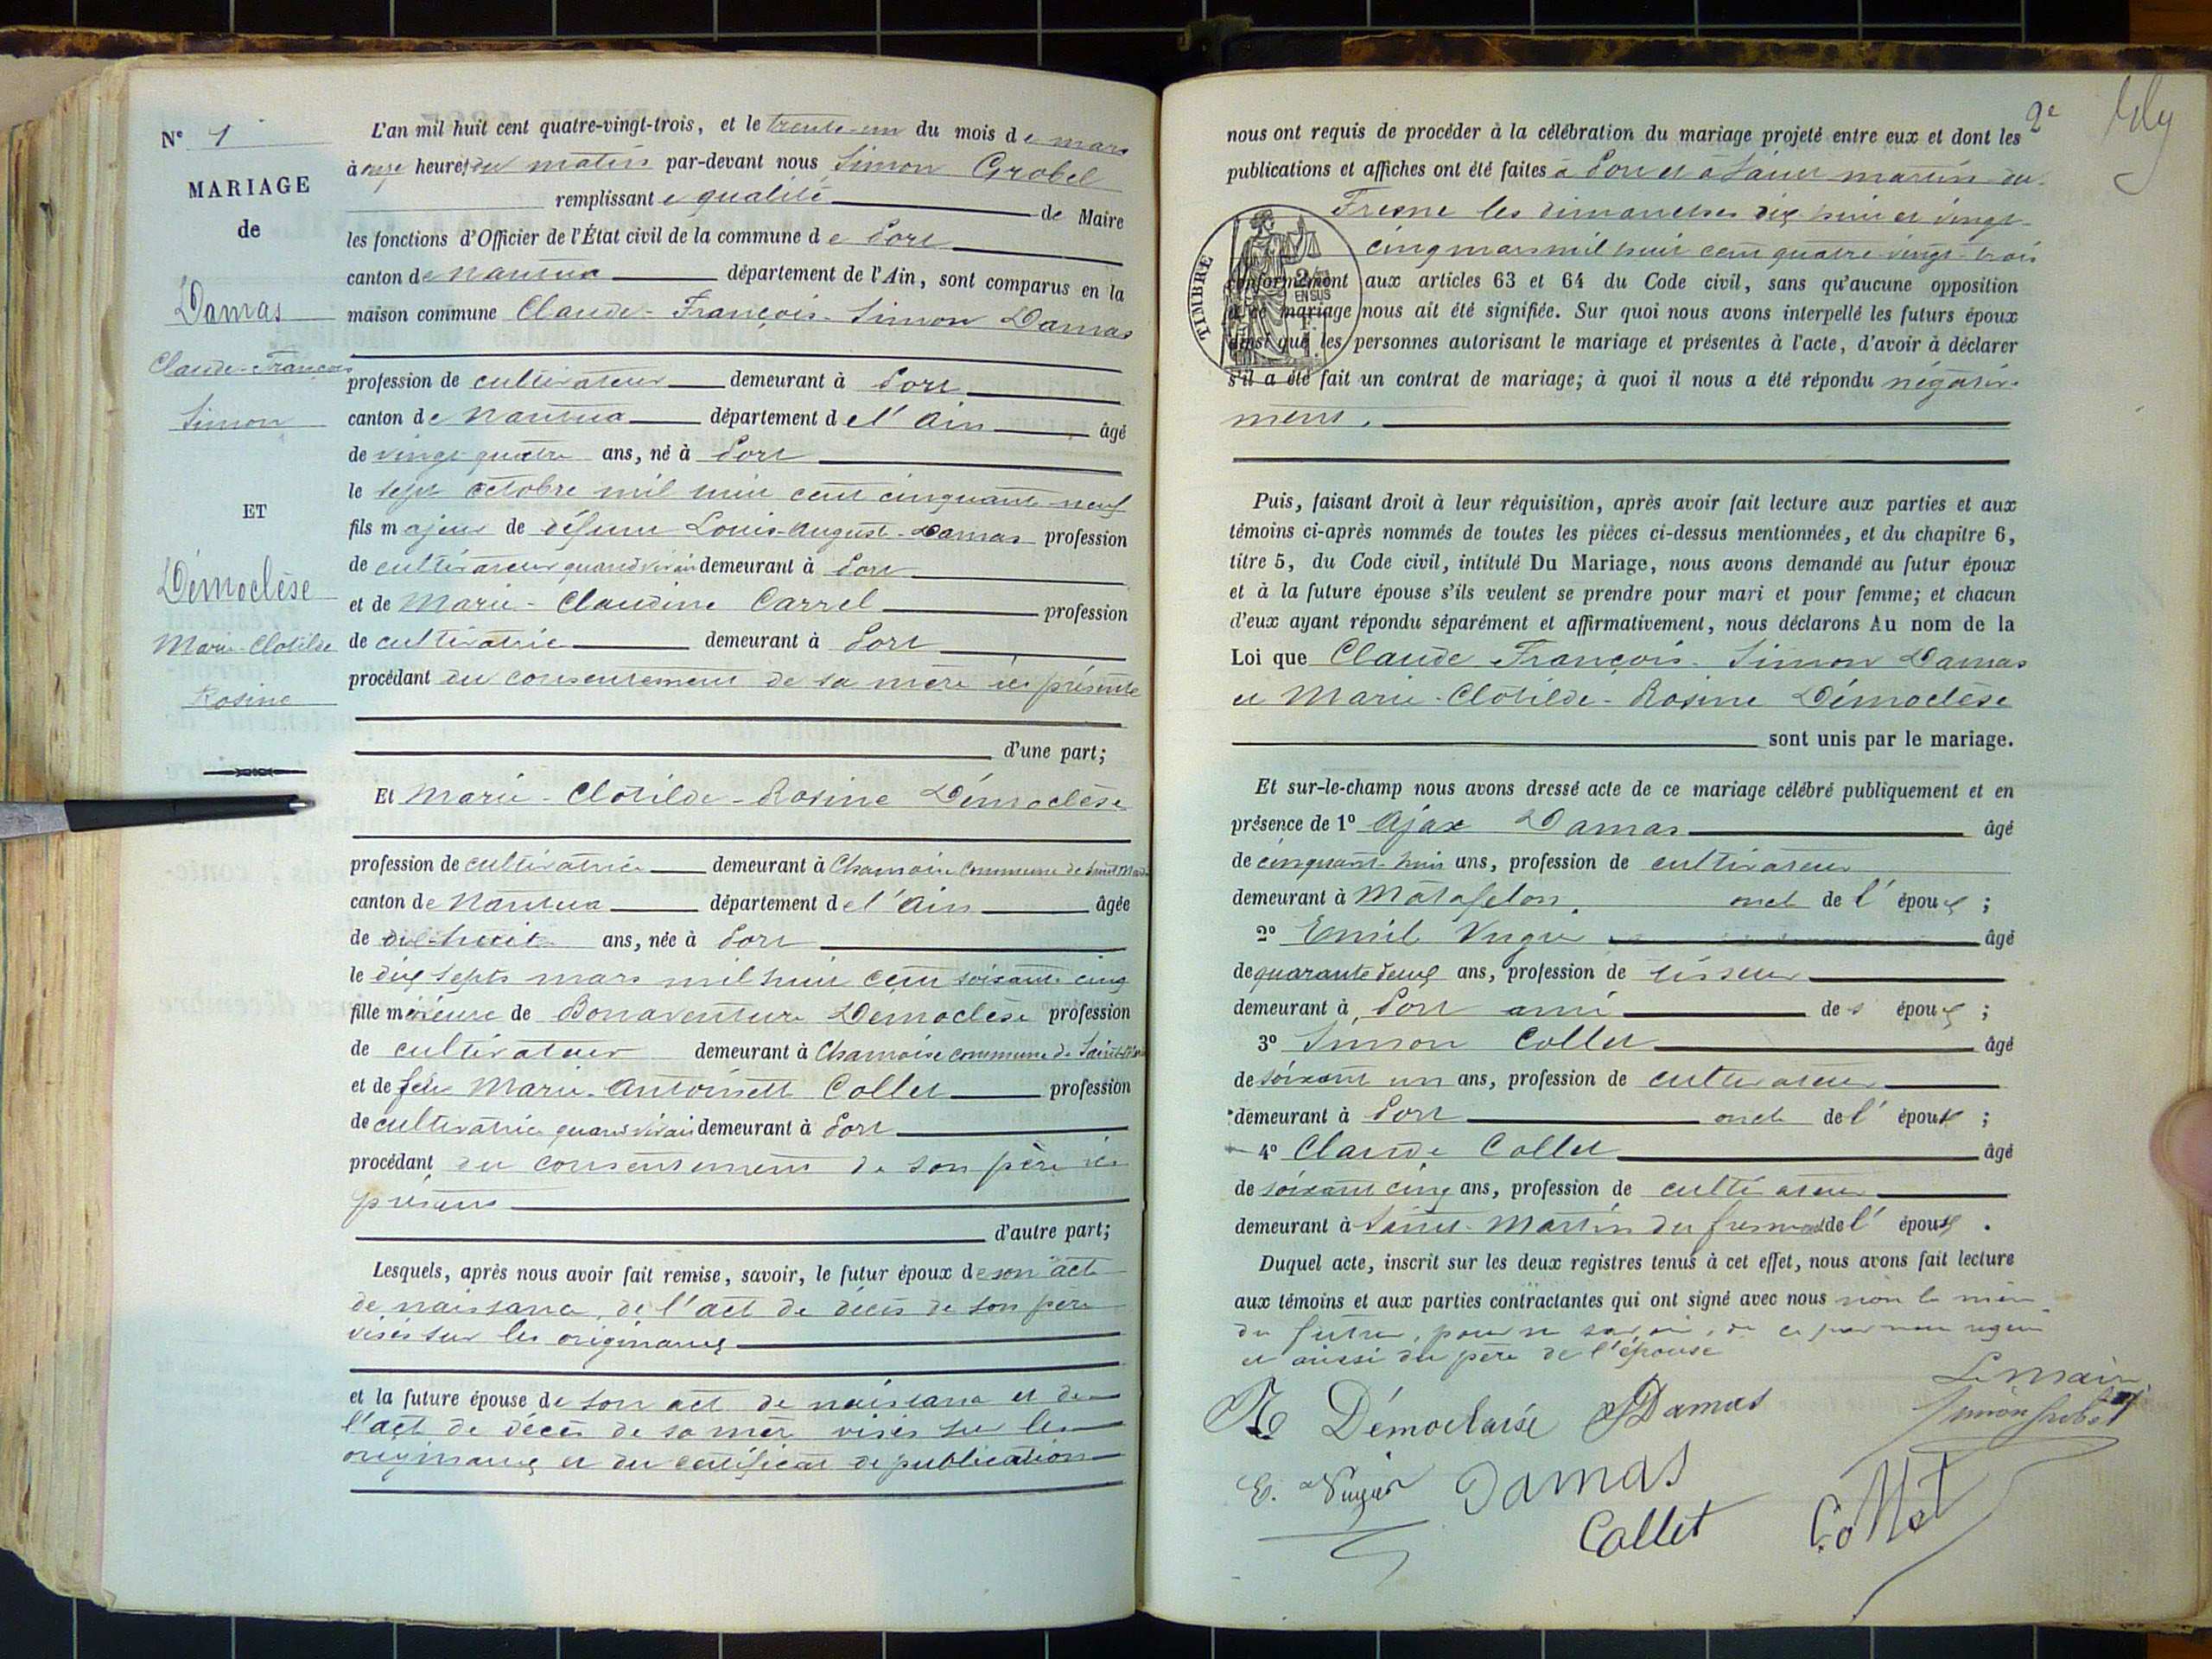 N° 1
MARIAGE
de
Damas
Claude-François
Simon
ET
Démoclèse
Marie-Clotilde
Rosine
L'an mil huit cent quatre-vingt-trois, et le trente-un du mois de mars
à onze heures du matin par-devant nous Simon Grobel
remplissant e qualité de Maire
les fonctions d'Officier de l'État civil de la commune de Port
canton de Nantua département de l'Ain, sont comparus en la
maison commune Claude-François-Simon Damas
profession de cultivateur demeurant à Port
canton de Nantua département de l'Ain âgé
de vingt quatre ans, né à Port
le sept octobre mil huit cent cinquante-neuf
fils majeur de défunt Louis-August-Damas profession
de cultivateur quand vivait demeurant à Port
et de Marie-Claudine Carrel profession
de cultivatrice demeurant à Port
procédant du consentement de sa mère ici présente
d'une part;
Et Marie-Clotilde-Rosine Démoclèse
profession de cultivatrice demeurant à Chamoise commune de Saint
canton de Nantua département de l'Ain âgée
de dix-huit ans, née à Port
le dix sept mars mil huit cent soixante cinq
fille mineure de Bonaventure Démoclèse profession
de cultivateur demeurant à Chamoise commune de Saint
et de feue Marie-Antoinett Collet profession
de cultivatrice quand vivait demeurant à Port
procédant du consentement de son père ici
présent
d'autre part;
Lesquels, après nous avoir fait remise, savoir, le futur époux de son act
de naissance, de l'act de décès de son père
visés sur les originaux
et la future épouse de son act de naissance et de
l'act de décès de sa mère visés sur les
originaux et du certificat de publication
2e
nous ont requis de procéder à la célébration du mariage projeté entre eux et dont les
publications et affiches ont été faites à Port et à Saint martin du
Fresne les dimanches dix-huit et vingt-
cinq mars mil huit cent quatre-vingt-trois
TIMBRE
conformément aux articles 63 et 64 du Code civil, sans qu'aucune opposition
à ce mariage nous ait été signifiée. Sur quoi nous avons interpellé les futurs époux
ainsi que les personnes autorisant le mariage et présentes à l'acte, d'avoir à déclarer
s'il a été fait un contrat de mariage; à quoi il nous a été répondu négative-
ment.
Puis, faisant droit à leur réquisition, après avoir fait lecture aux parties et aux
témoins ci-après nommés de toutes les pièces ci-dessus mentionnées, et du chapitre 6,
titre 5, du Code civil, intitulé Du Mariage, nous avons demandé au futur époux
et à la future épouse s'ils veulent se prendre pour mari et pour femme; et chacun
d'eux ayant répondu séparément et affirmativement, nous déclarons Au nom de la
Loi que Claude François-Simon Damas
et Marie-Clotilde-Rosine Démoclèse
sont unis par le mariage.
Et sur-le-champ nous avons dressé acte de ce mariage célébré publiquement et en
présence de 1° Ajax Damas âgé
de cinquante-huit ans, profession de cultivateur
demeurant à Matafelon. oncle de l'époux ;
2° Emil âgé
de quarante deux ans, profession de tisseur
demeurant à Port ami de s époux ;
3° Simon Collet âgé
de soixante un ans, profession de cultivateur
demeurant à Port oncle de l'épouse ;
4° Claude Collet âgé
de soixante cinq ans, profession de cultivateur
demeurant à Saint-Martin du fresne de l'épouse .
Duquel acte, inscrit sur les deux registres tenus à cet effet, nous avons fait lecture
aux témoins et aux parties contractantes qui ont signé avec nous non la mère
du futur, pour ne savoir, de ce par nous requis
et aussi du père de l'épouse
Le Maire
Simon Grobel
Démoclaise Damas
E. Damas
Collet Collet